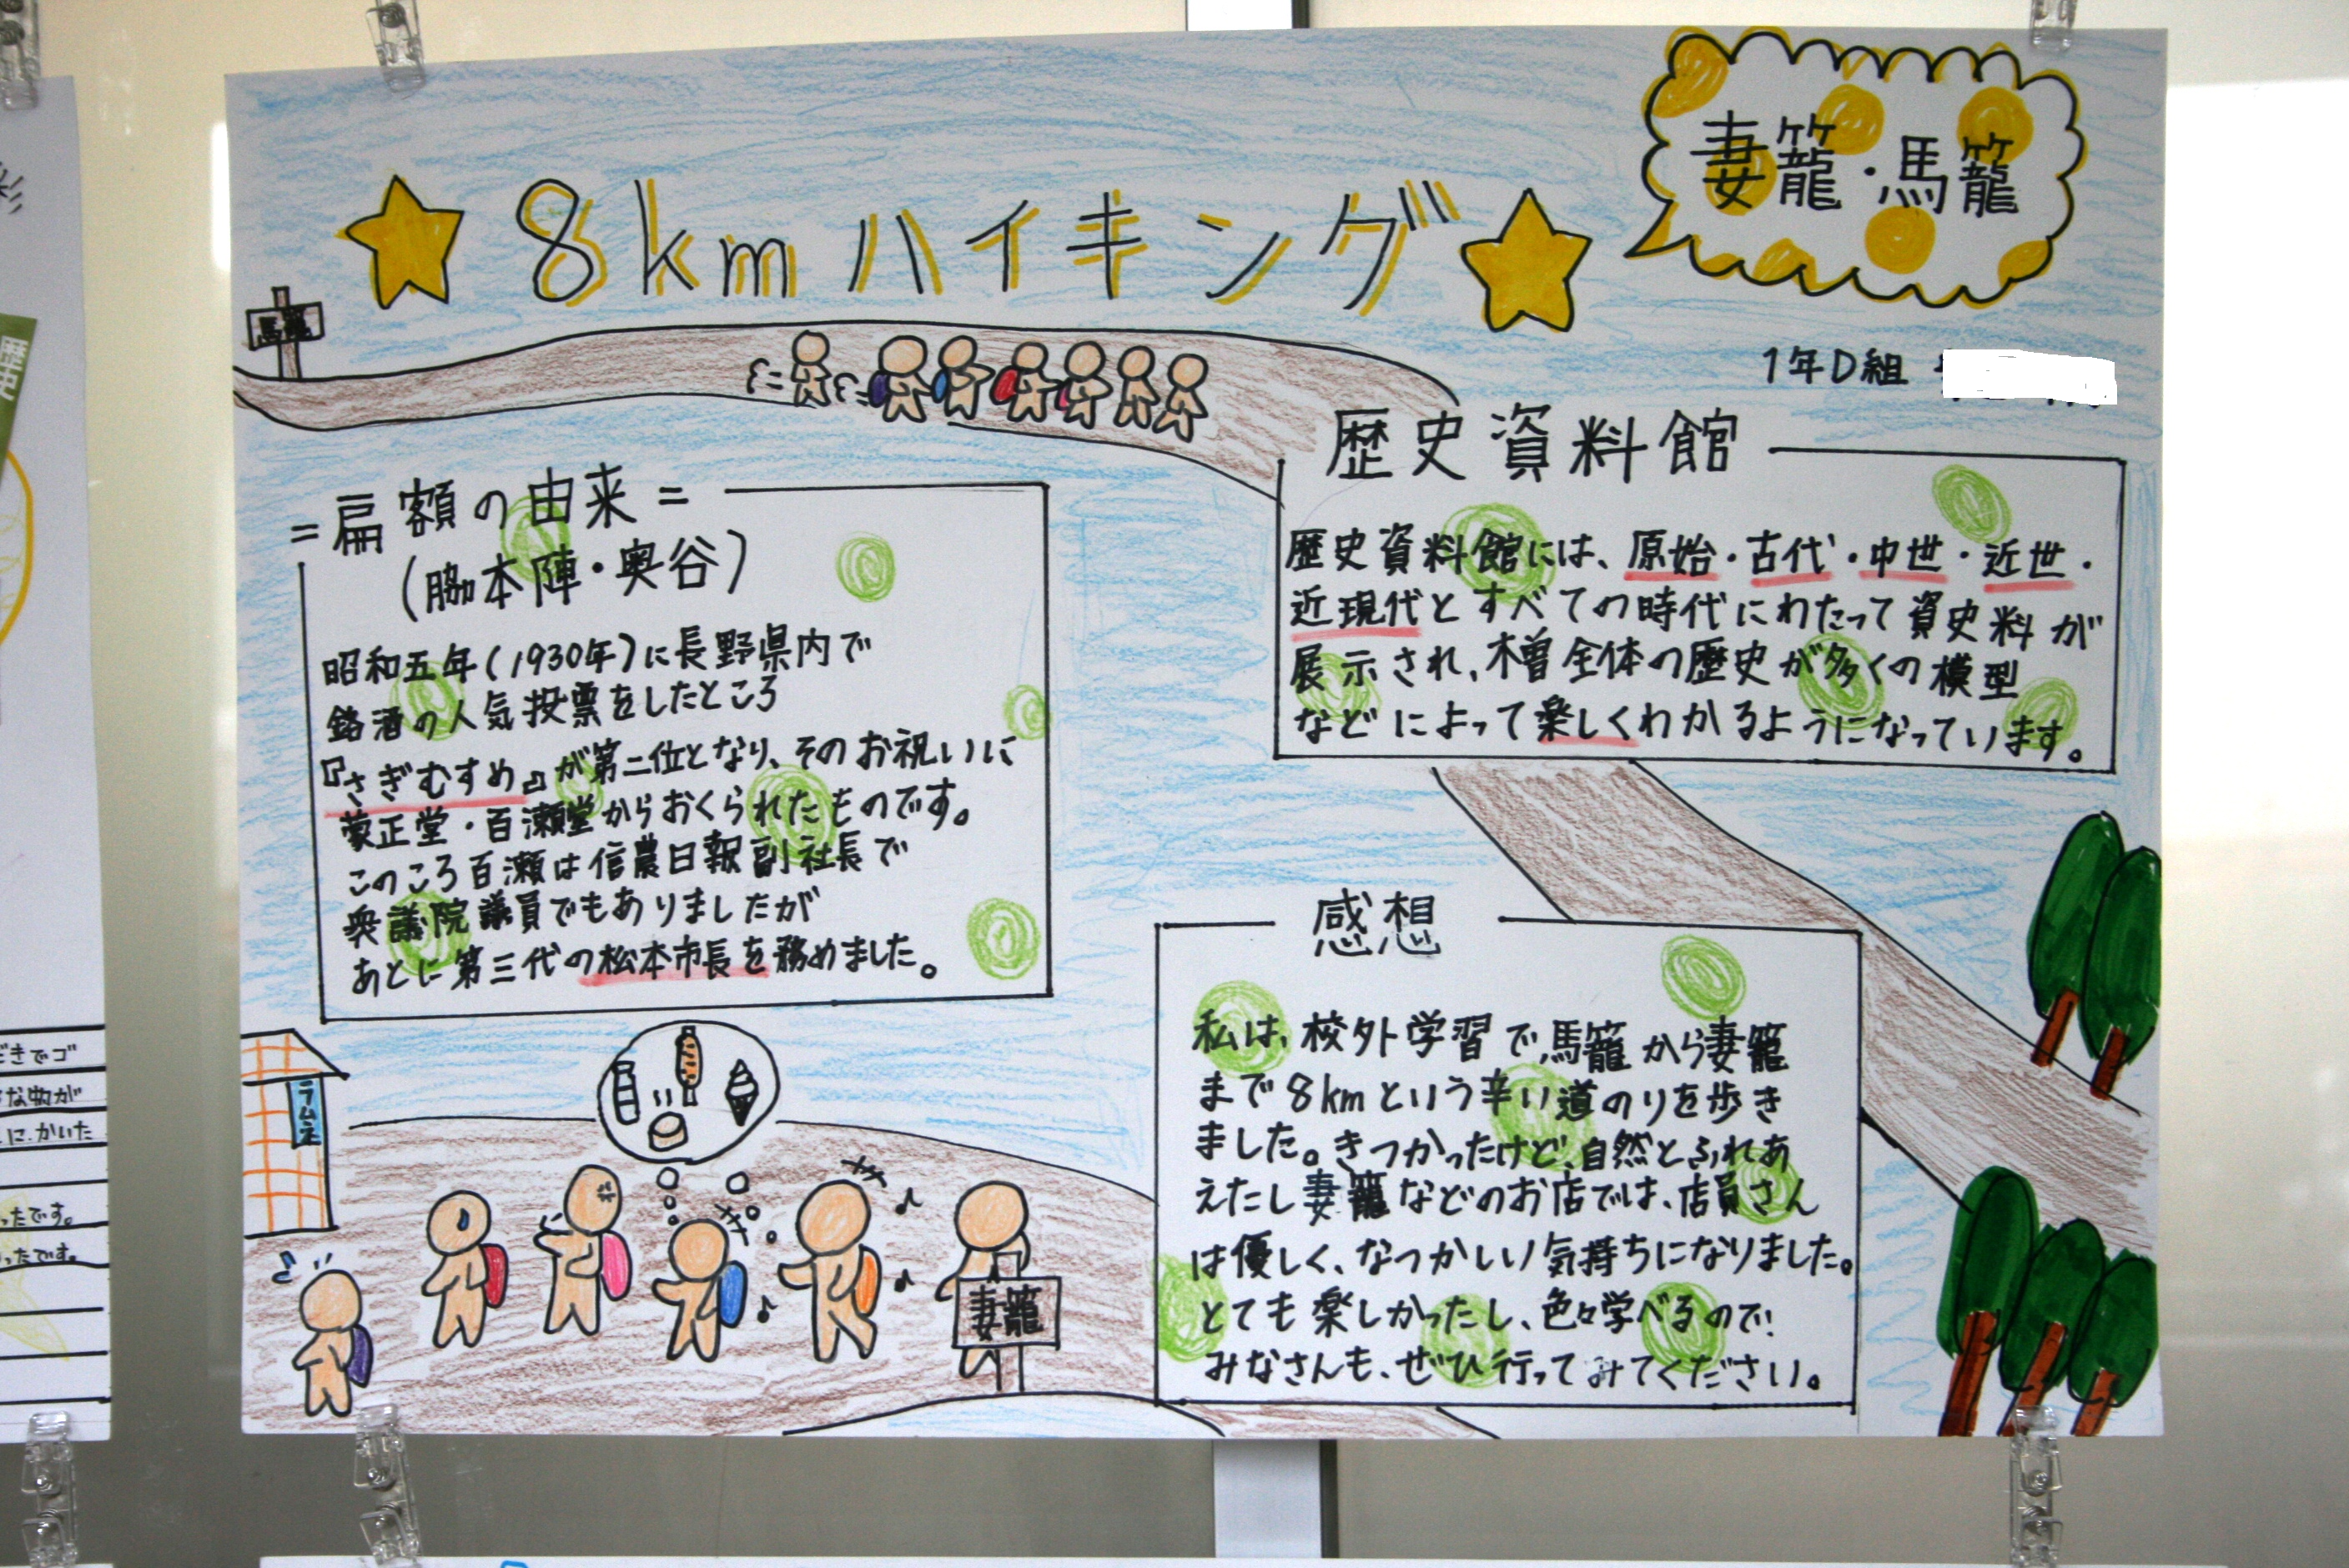 妻籠・馬籠
8kmハイキング
馬籠
1年D組
=扁額の由来=
(脇本陣・奥谷)
昭和五年(1930年)に長野県内で
銘酒の人気投票をしたところ
『さぎむすめ』が第二位となり、そのお祝いに
蒙正堂・百瀬堂からおくられたものです。
このころ百瀬は信農日報副社長で
衆議院議員でもありましたが
あとに第三代の松本市長を務めました。
歴史資料館
歴史資料館には、原始・古代・中世・近世・
近現代とすべての時代にわたって資史料が
展示され、木曽全体の歴史が多くの模型
などによって楽しくわかるようになっています。
感想
私は、校外学習で、馬籠から妻籠
まで8kmという辛い道のりを歩き
ました。きつかったけど、自然とふれあ
えたし妻籠などのお店では、店員さん
は優しく、なつかしい気持ちになりました。
とても楽しかったし、色々学べるので、
みなさんも、ぜひ行ってみてください。
ラムネ
妻籠
歴史
だきでゴ
な物が
に、かいた
ったです。
ったです。